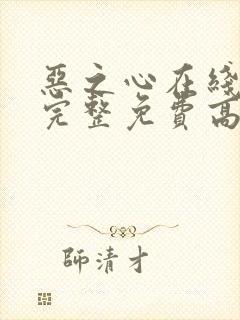 惡之心在綫
完整免費高
師清才